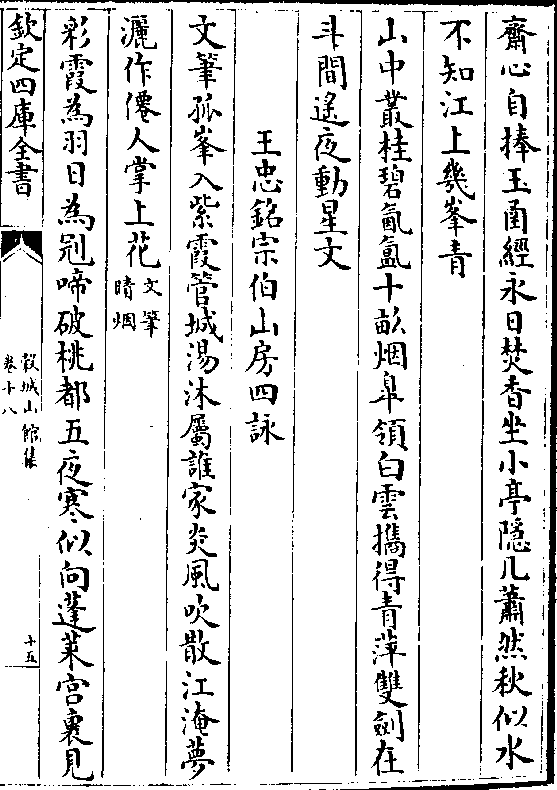 齋心自捧玉函經永日焚香坐小亭隱几蕭然秋似水
不知江上幾峯青
山中叢桂碧氤氲十畝烟皐領白雲攜得青萍雙劍在
斗間遙夜動星文
王忠銘宗伯山房四詠
文筆孤峯入紫霞管城湯沐屬誰家炎風吹散江淹夢
灑作僊人掌上花文筆晴烟
彩霞為羽日為冠啼破桃都五夜寒似向蓬萊宫裏見
欽定四庫全書
穀城山館集
卷十八
十五